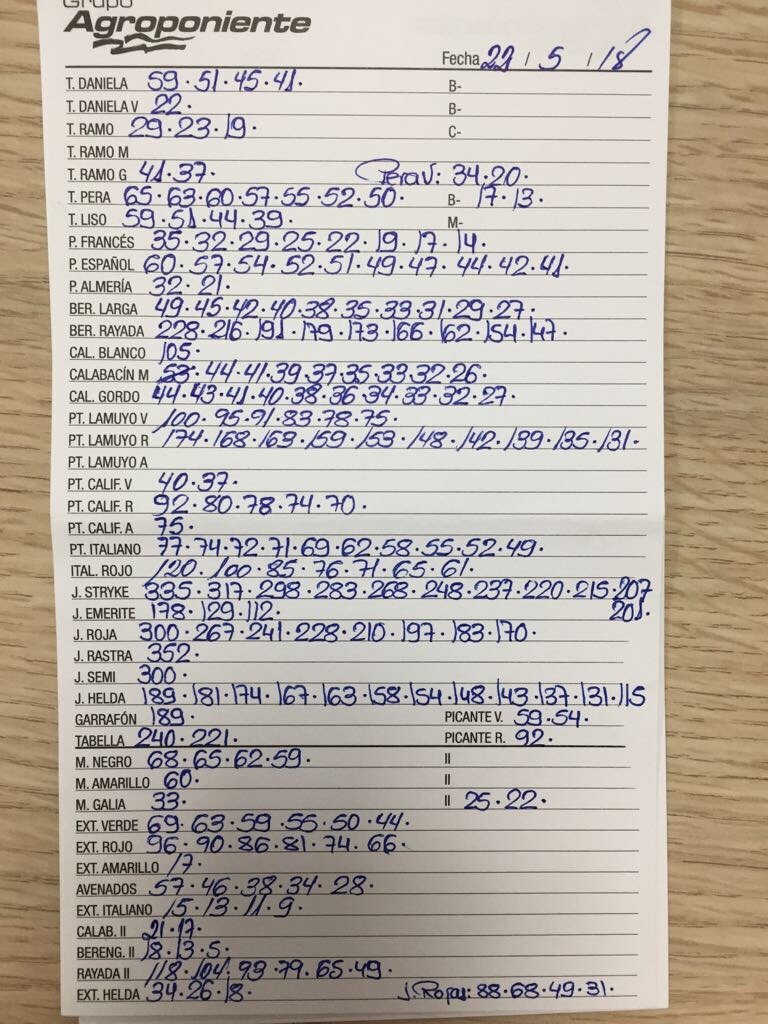 Grupo
Agroponiente
Fecha 22 / 5 / 18
T. DANIELA 59 · 51 · 45 · 41 · B-
T. DANIELA V 22 · B-
T. RAMO 29 · 23 · 19 · C-
T. RAMO M
T. RAMO G 41 · 37 · Pera V: 34 · 20 ·
T. PERA 65 · 63 · 60 · 57 · 55 · 52 · 50 · B- 17 · 13 ·
T. LISO 59 · 51 · 44 · 39 · M-
P. FRANCÉS 35 · 32 · 29 · 25 · 22 · 19 · 17 · 14 ·
P. ESPAÑOL 60 · 57 · 54 · 52 · 51 · 49 · 47 · 44 · 42 · 41 ·
P. ALMERÍA 32 · 21 ·
BER. LARGA 49 · 45 · 42 · 40 · 38 · 35 · 33 · 31 · 29 · 27 ·
BER. RAYADA 228 · 216 · 191 · 179 · 173 · 166 · 162 · 154 · 147 ·
CAL. BLANCO 105 ·
CALABACÍN M 53 · 44 · 41 · 39 · 37 · 35 · 33 · 32 · 26 ·
CAL. GORDO 44 · 43 · 41 · 40 · 38 · 36 · 34 · 33 · 32 · 27 ·
PT. LAMUYO V 100 · 95 · 91 · 83 · 78 · 75 ·
PT. LAMUYO R 174 · 168 · 163 · 159 · 153 · 148 · 142 · 139 · 135 · 131 ·
PT. LAMUYO A
PT. CALIF. V 40 · 37 ·
PT. CALIF. R 92 · 80 · 78 · 74 · 70 ·
PT. CALIF. A 75 ·
PT. ITALIANO 77 · 74 · 72 · 71 · 69 · 62 · 58 · 55 · 52 · 49 ·
ITAL. ROJO 120 · 100 · 85 · 76 · 71 · 65 · 61 ·
J. STRYKE 335 · 317 · 298 · 283 · 268 · 248 · 237 · 220 · 215 · 207
J. EMERITE 178 · 129 · 112 · 201 ·
J. ROJA 300 · 267 · 241 · 228 · 210 · 197 · 183 · 170 ·
J. RASTRA 352 ·
J. SEMI 300 ·
J. HELDA 189 · 181 · 174 · 167 · 163 · 158 · 154 · 148 · 143 · 137 · 131 · 115
GARRAFÓN 189 · PICANTE V. 59 · 54 ·
TABELLA 240 · 221 · PICANTE R. 92 ·
M. NEGRO 68 · 65 · 62 · 59 · II
M. AMARILLO 60 · II
M. GALIA 33 · II 25 · 22 ·
EXT. VERDE 69 · 63 · 59 · 55 · 50 · 44 ·
EXT. ROJO 96 · 90 · 86 · 81 · 74 · 66 ·
EXT. AMARILLO 17 ·
AVENADOS 57 · 46 · 38 · 34 · 28 ·
EXT. ITALIANO 15 · 13 · 11 · 9 ·
CALAB. II 21 · 17 ·
BERENG. II 18 · 13 · 5 ·
RAYADA II 118 · 104 · 93 · 79 · 65 · 49 ·
EXT. HELDA 34 · 26 · 18 · J. Rojas: 88 · 68 · 49 · 31 ·